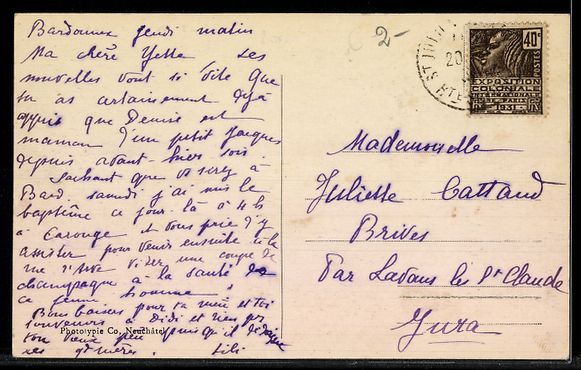 Bardonnex jeudi matin
Ma chère Yette les
nouvelles vont si vite que
tu as certainement déjà
appris que Denise est
maman d'un petit Jacques
depuis avant hier soir.
Sachant que serez à
Bard. samedi j'ai mis le
baptême ce jour là à 4 h
à Carouge et vous prie d'y
assister pour venir ensuite à la
rue vider une coupe de
champagne à la santé de
ce jeune homme!
Bons baisers pour ta mère et toi
souvenirs à Didi et rien pr
ton vieux père puisqu'il
Lili
Phototypie Co, Neuchâtel
2-
ST JULI
20
HTE
40c
POSTES
EXPOSITION
COLONIALE
INTERNATIONALE
PARIS 1931
RF
Mademoiselle
Juliette Cattand
Brives
Par Lavans les St Claude
Jura